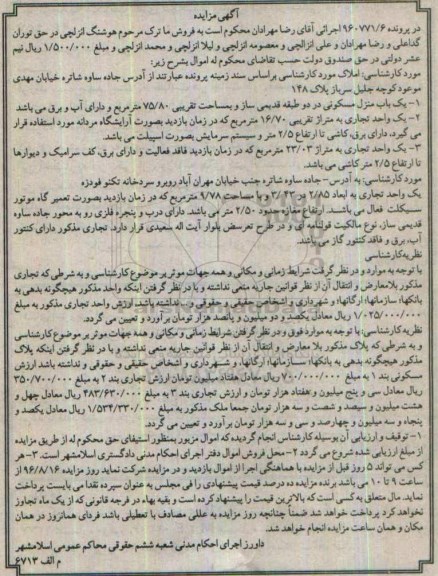 آگهی مزایده
در پرونده ۹۶۰۷۷۱/۶ اجرائی آقای رضا مهرادان محکوم است به فروش ما ترک مرحوم هوشنگ انزلچی در حق توران
گداعلی و رضا مهرادان و علی انزالچی و معصومه انزلچی و لیلا انزلچی و محمد انزلچی و مبلغ ۱/۵۰۰/۰۰۰ ریال نیم
عشر دولتی در حق صندوق دولت حسب تقاضای محکوم له اموال بشرح زیر:
مورد کارشناسی: املاک مورد کارشناسی براساس سند زمینه پرونده عبارتند از آدرس جاده ساوه شاتره خیابان مهدی
موعود کوچه جلیل سرباز پلاک ۱۴۸
۱- یک باب منزل مسکونی در دو طبقه قدیمی ساز و بمساحت تقریبی ۷۵/۸۰ مترمربع و دارای آب و برق می باشد
۲- یک واحد تجاری به متراژ تقریبی ۱۶/۷۰ مترمربع که در زمان بازدید بصورت آرایشگاه مردانه مورد استفاده قرار
می گیرد، دارای برق، کاشی تا ارتفاع ۲/۵ متر و سیستم سرمایش بصورت اسپیلت می باشد.
۳- یک واحد تجاری به متراژ ۲۳/۰۳ مترمربع که در زمان بازدید فاقد فعالیت و دارای برق، کف سرامیک و دیوارها
تا ارتفاع ۲/۵ متر کاشی می باشد.
مورد کارشناسی: به آدرس- جاده ساوه شاتره جنب خیابان مهران آباد روبرو سردخانه تکنو فودزه
یک واحد تجاری به ابعاد ۲/۸۵ و ۳/۴۳ با مساحت ۹/۷۸ مترمربع که در زمان بازدید بصورت تعمیر گاه موتور
سیکلت فعال می باشد. ارتفاع مغازه حدود ۲/۵۰ متر می باشد. دارای درب و پنجره فلزی رو به محور جاده ساوه
قدیمی ساز، نوع مالکیت قولنامه ای و در طرح تعریض بلوار آیت اله سعیدی قرار دارد. تجاری مذکور دارای کنتور
آب، برق و فاقد کنتور گاز می باشد.
نظریه کارشناسی
با توجه به موارد و در نظر گرفت شرایط زمانی و مکانی و همه جهات موثر بر موضوع کارشناسی و به شرطی که تجاری
مذکور بلامعارض و انتقال آن از نظر قوانین جاریه منعی نداشته و با در نظر گرفتن اینکه واحد مذکور هیچگونه بدهی به
بانکها؛ سازمانها، ارگانها، و شهرداری و اشخاص حقیقی و حقوقی و... نداشته باشد ارزش واحد تجاری مذکور به مبلغ
۱/۰۲۵/۰۰۰/۰۰۰ ریال معادل یکصد و دو میلیون و پانصد هزار تومان برآورد و تعیین می گردد.
نظریه کارشناسی: با توجه به موارد فوق و در نظر گرفتن شرایط زمانی و مکانی و همه جهات موثر بر موضوع کارشناسی
و به شرطی که پلاک مذکور بلا معارض و انتقال آن از نظر قوانین جاریه منعی نداشته و با در نظر گرفتن اینکه پلاک
مذکور هیچگونه بدهی به بانکها؛ سازمانها؛ ارگانها، و شهرداری و اشخاص حقیقی و حقوقی و نداشته باشد ارزش
مسکونی بند ۱ به مبلغ ۷۰۰/۰۰۰/۰۰۰ ریال معادل هفتاد میلیون تومان ارزش تجاری بند ۲ به مبلغ ۳۵۰/۷۰۰/۰۰۰
ریال معادل سی و پنج میلیون و هفتاد هزار تومان و ارزش تجاری بند ۳ به مبلغ ۴۸۳/۶۳۰/۰۰۰ ریال معادل چهل و
هشت میلیون و سیصد و شصت و سه هزار تومان جمعا ملک مذکور به مبلغ ۱/۵۳۴/۳۳۰/۰۰۰ ریال معادل یکصد و
پنجاه و سه میلیون و چهارصد و سی و سه هزار تومان برآورد و تعیین می گردد.
۱- توقیف و ارزیابی آن بوسیله کارشناس انجام گردیده که اموال مزبور بمنظور استیفای حق محکوم له از طریق مزایده
از مبلغ ارزیابی شده شروع می گردد ۲- محل فروش اموال دفتر اجرای احکام مدنی دادگستری اسلامشهر است. ۳- هر
کس می تواند ۵ روز قبل از مزایده با هماهنگی اجرا از اموال بازدید و در مزایده شرکت نماید روز مزایده ۹۶/۸/۱۶ از
ساعت ۹ تا ۱۰ می باشد برنده مزایده ده درصد قیمت پیشنهادی را فی مجلس به عنوان سپرده نقدا می بایست پرداخت
نماید. مال متعلق به کسی است که بالاترین قیمت را پیشنهاد کرده است و بقیه بهاء در فرجه قانونی که از یک ماه تجاوز
نخواهد کرد پرداخت خواهد شد ضمناً چنانچه روز مزایده به عللی مصادف با تعطیلی باشد فردای همانروز در همان
مکان و همان ساعت مزایده انجام خواهد شد.
داورز اجرای احکام مدنی شعبه ششم حقوقی محاکم عمومی اسلامشهر
م الف ۶۷۱۳